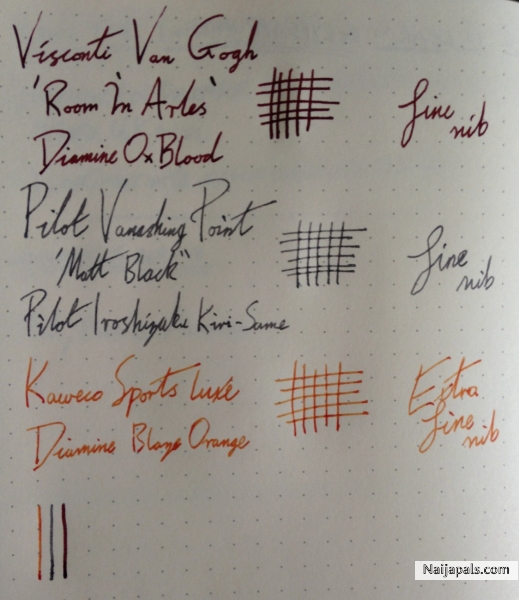 Visconti Van Gogh
'Room In Arles'
fine nib
Diamine OxBlood
Pilot Vanashing Point
'Matt Black"
fine nib
Pilot Iroshizuku Kiri-Same
Kaweco Sports Luxe
Extra fine nib
Diamine Blaze Orange
Naijapals.com